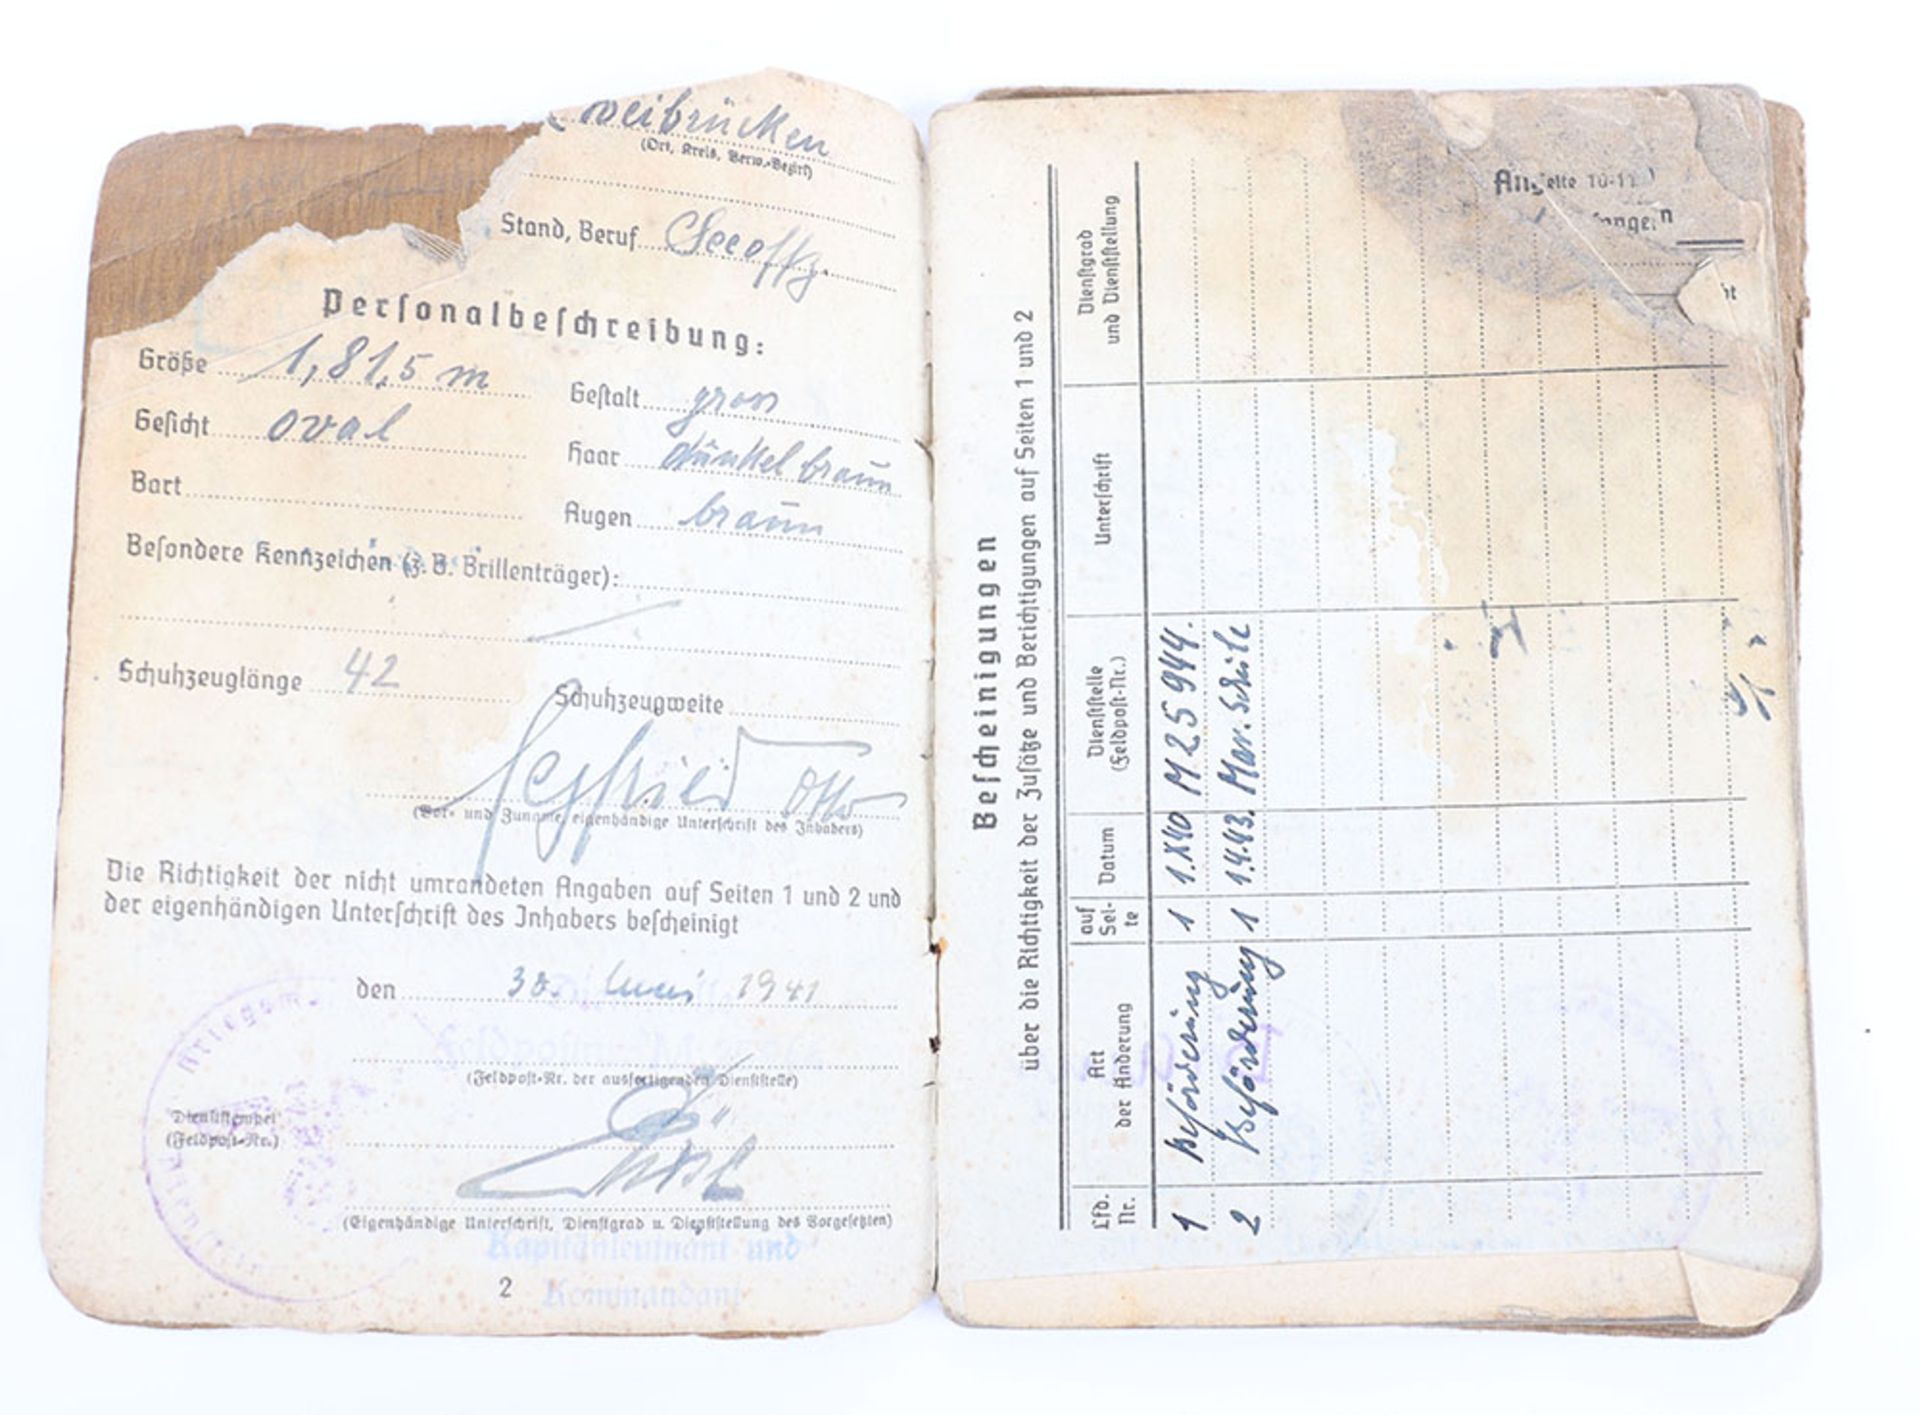 weibrücken
(Ort, Kreis, Verw.-Bezirk)
Stand, Beruf Seeoffz.
Personalbeschreibung:
Größe 1,81,5 m Gestalt gross
Gesicht oval Haar dunkelbraun
Bart Augen braun
Besondere Kennzeichen (z. B. Brillenträger):
Schuhzeuglänge 42 Schuhzeugweite
Segfried Otto
(Vor- und Zuname, eigenhändige Unterschrift des Inhabers)
Die Richtigkeit der nicht umrandeten Angaben auf Seiten 1 und 2 und
der eigenhändigen Unterschrift des Inhabers bescheinigt
den 30. Juni 1941
(Feldpost-Nr. der ausfertigenden Dienststelle)
Dienststempel
(Feldpost-Nr.)
(Eigenhändige Unterschrift, Dienstgrad u. Dienststellung des Vorgesetzten)
Kapitänleutnant und
Kommandant
2
Bescheinigungen
über die Richtigkeit der Zusätze und Berichtigungen auf Seiten 1 und 2
Lfd. Nr. Art der Änderung auf Sei-te Datum Dienststelle (Feldpost-Nr.) Unterschrift Dienstgrad und Dienststellung
1 Beförderung 1 1.X40 M 25944.
2 Beförderung 1 1.4.43. Mar. Schule